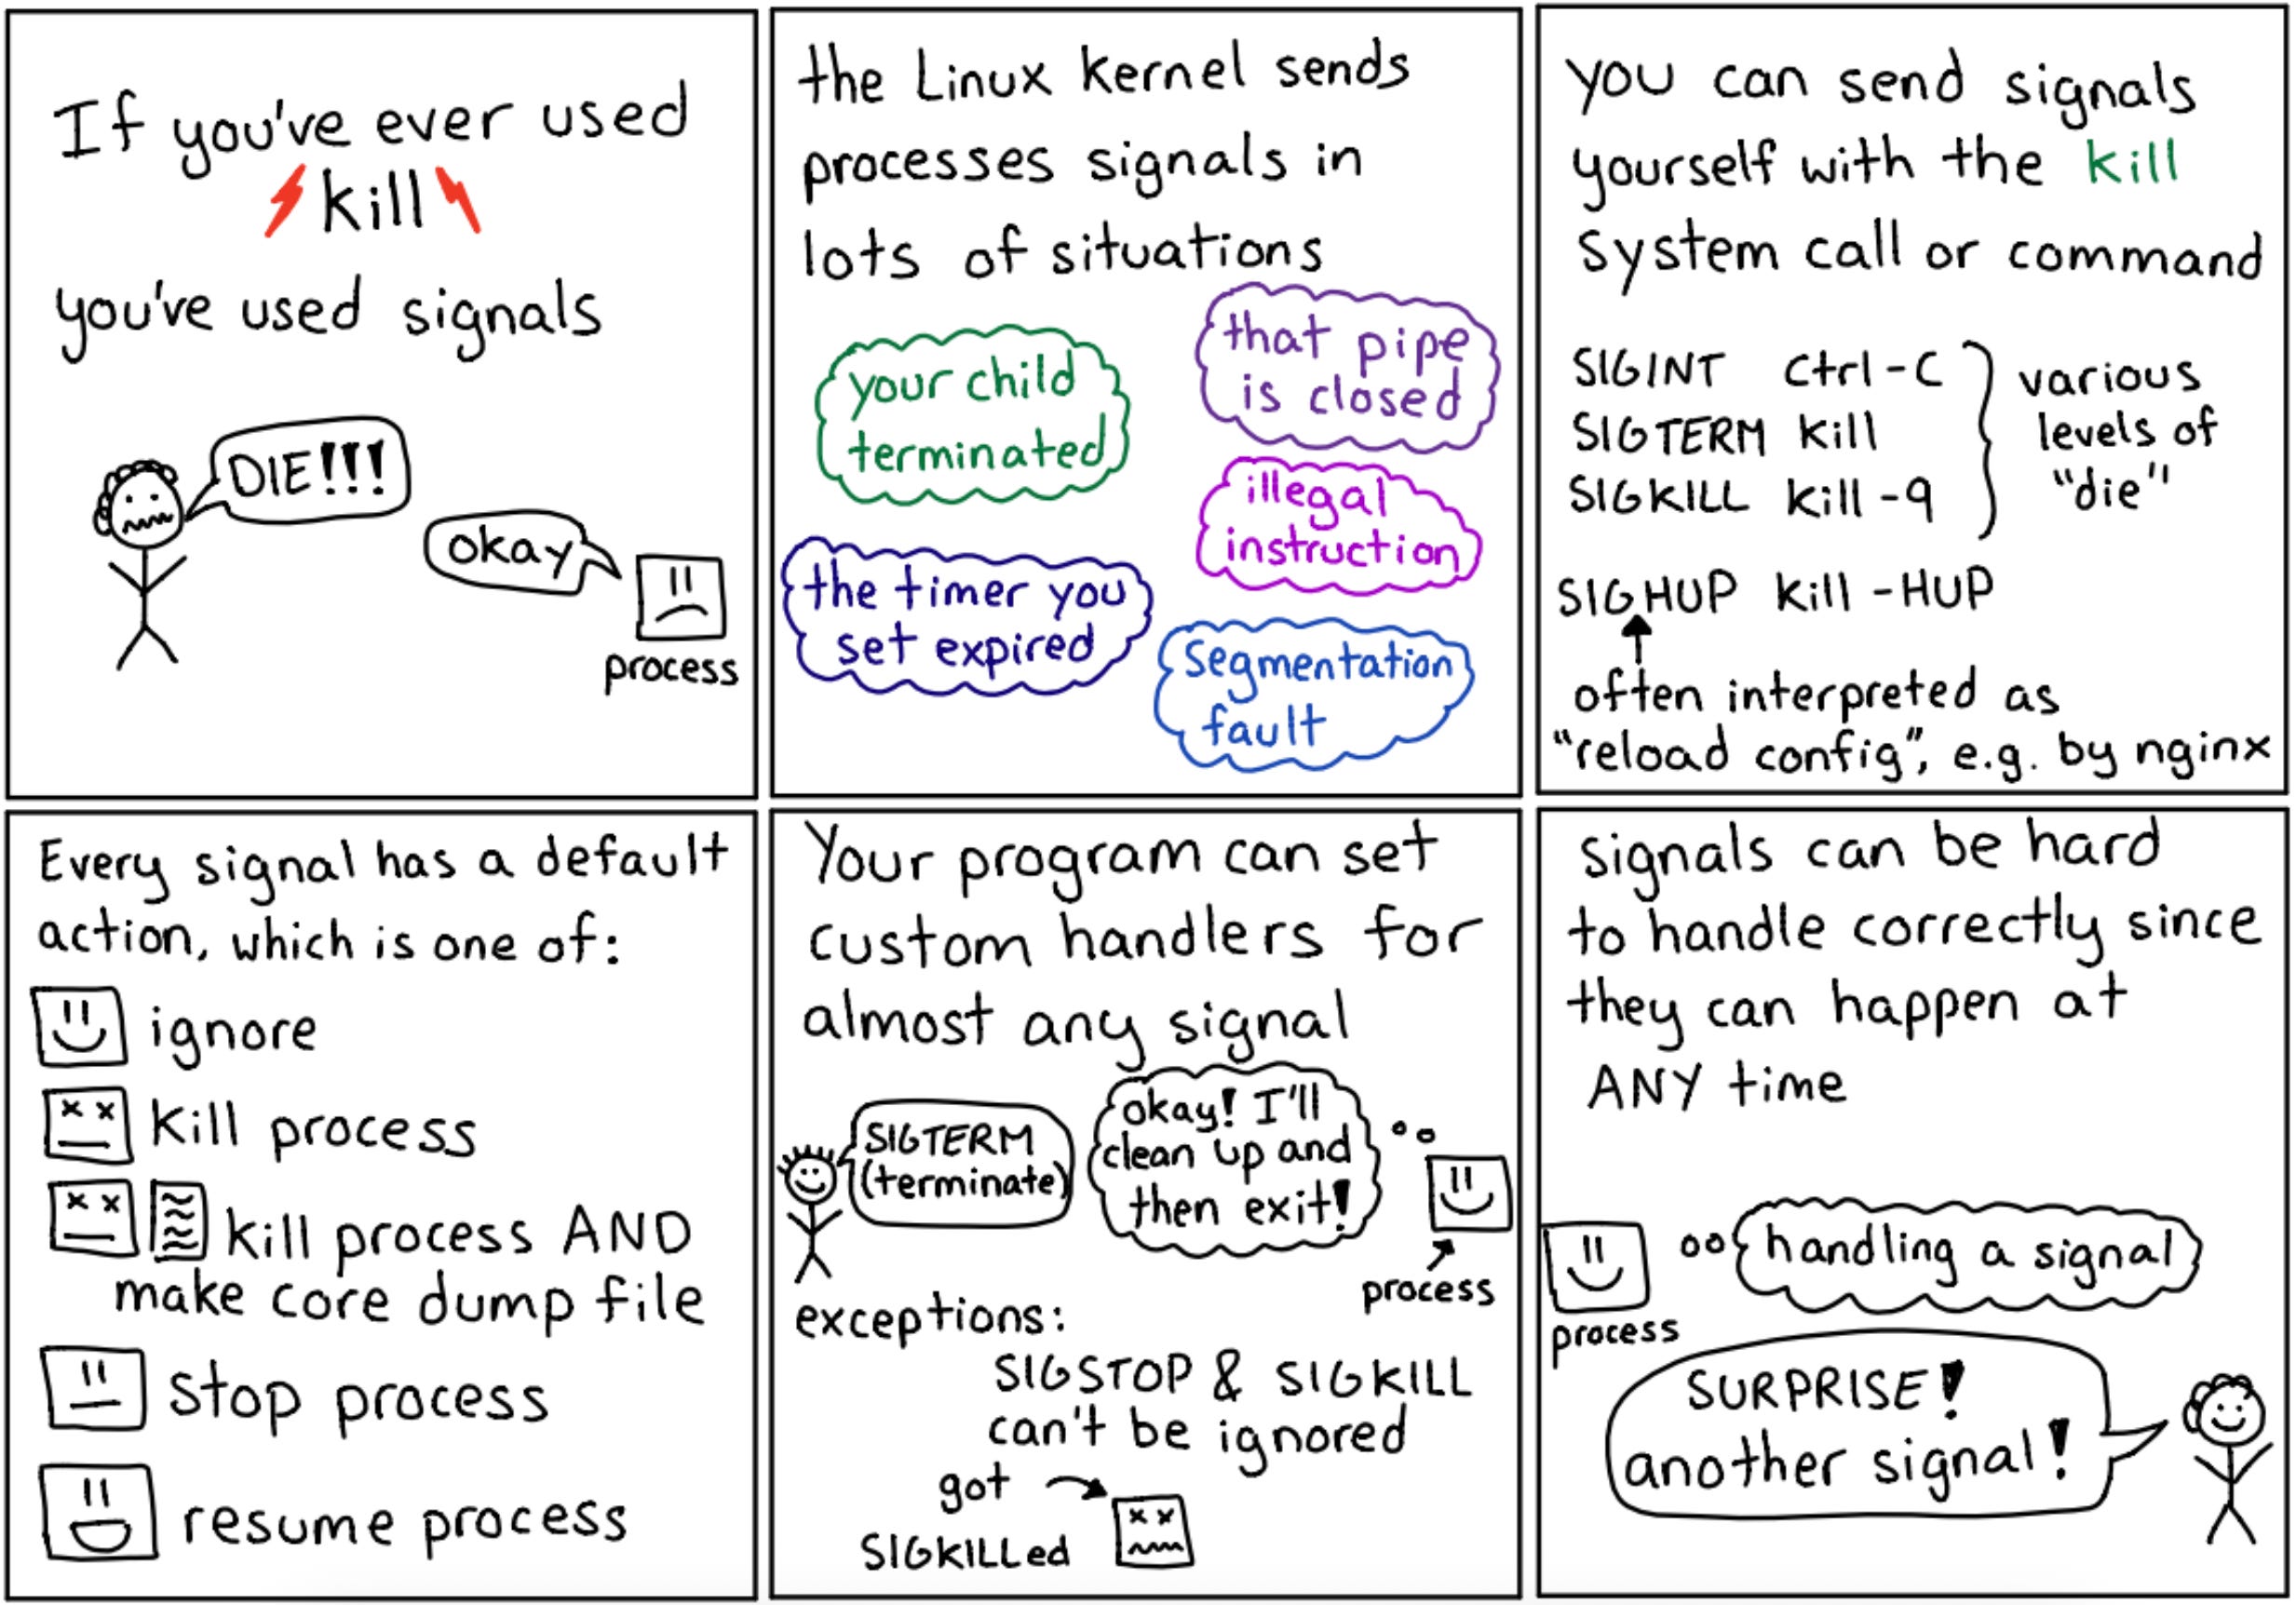 If you've ever used
kill
you've used signals
DIE!!!
okay
process
the Linux kernel sends
processes signals in
lots of situations
your child
terminated
that pipe
is closed
illegal
instruction
the timer you
set expired
segmentation
fault
you can send signals
yourself with the kill
system call or command
SIGINT ctrl-C
SIGTERM kill
SIGKILL kill -9
various
levels of
"die"
SIGHUP kill -HUP
often interpreted as
"reload config", e.g. by nginx
Every signal has a default
action, which is one of:
ignore
kill process
kill process AND
make core dump file
stop process
resume process
Your program can set
custom handlers for
almost any signal
SIGTERM
(terminate)
okay! I'll
clean up and
then exit!
process
exceptions:
SIGSTOP & SIGKILL
can't be ignored
got
SIGKILLed
signals can be hard
to handle correctly since
they can happen at
ANY time
handling a signal
process
SURPRISE!
another signal!